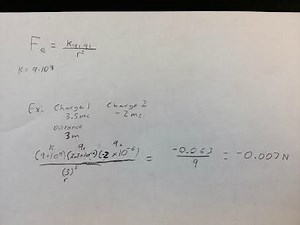 Fe = Kq₁q₁/r²
K = 9·10⁹
Ex. Charge 1 Charge 2
3.5mc -2mc
Distance
3m
K q₁ q₂
(9×10⁹)(3.5×10⁻⁶)(-2×10⁻⁶) / (3)² = -0.063/9 = -0.007N
r